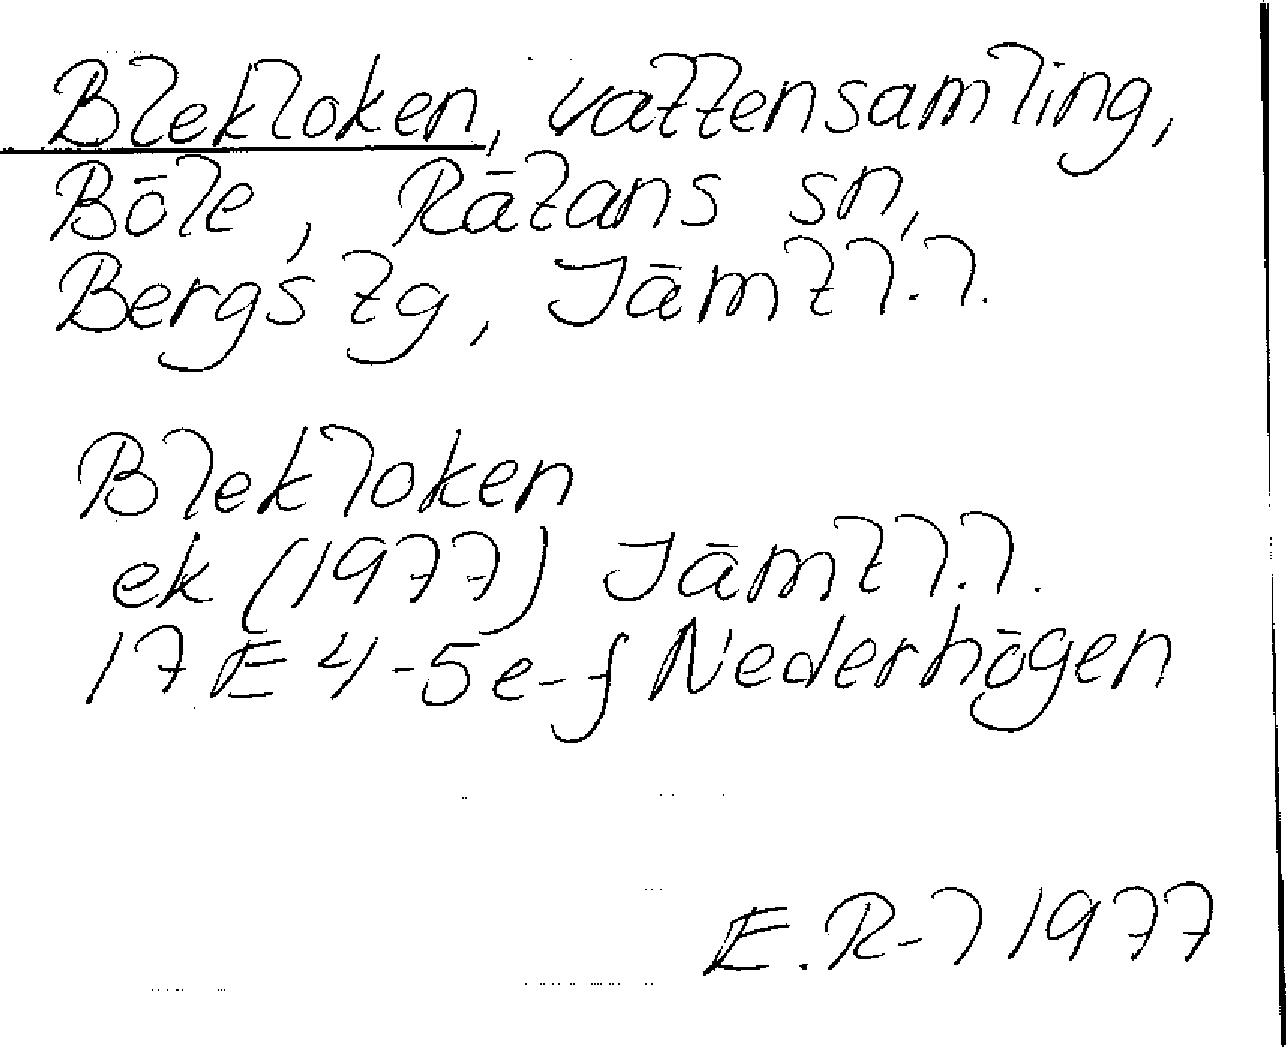 Blekloken, vattensamling,
Böle, Rätans sn,
Bergs tg, Jämtl.l.
Blekloken
ek (1977) Jämtl.l.
17E 4-5e-f Nederhögen
E.R-l 1977